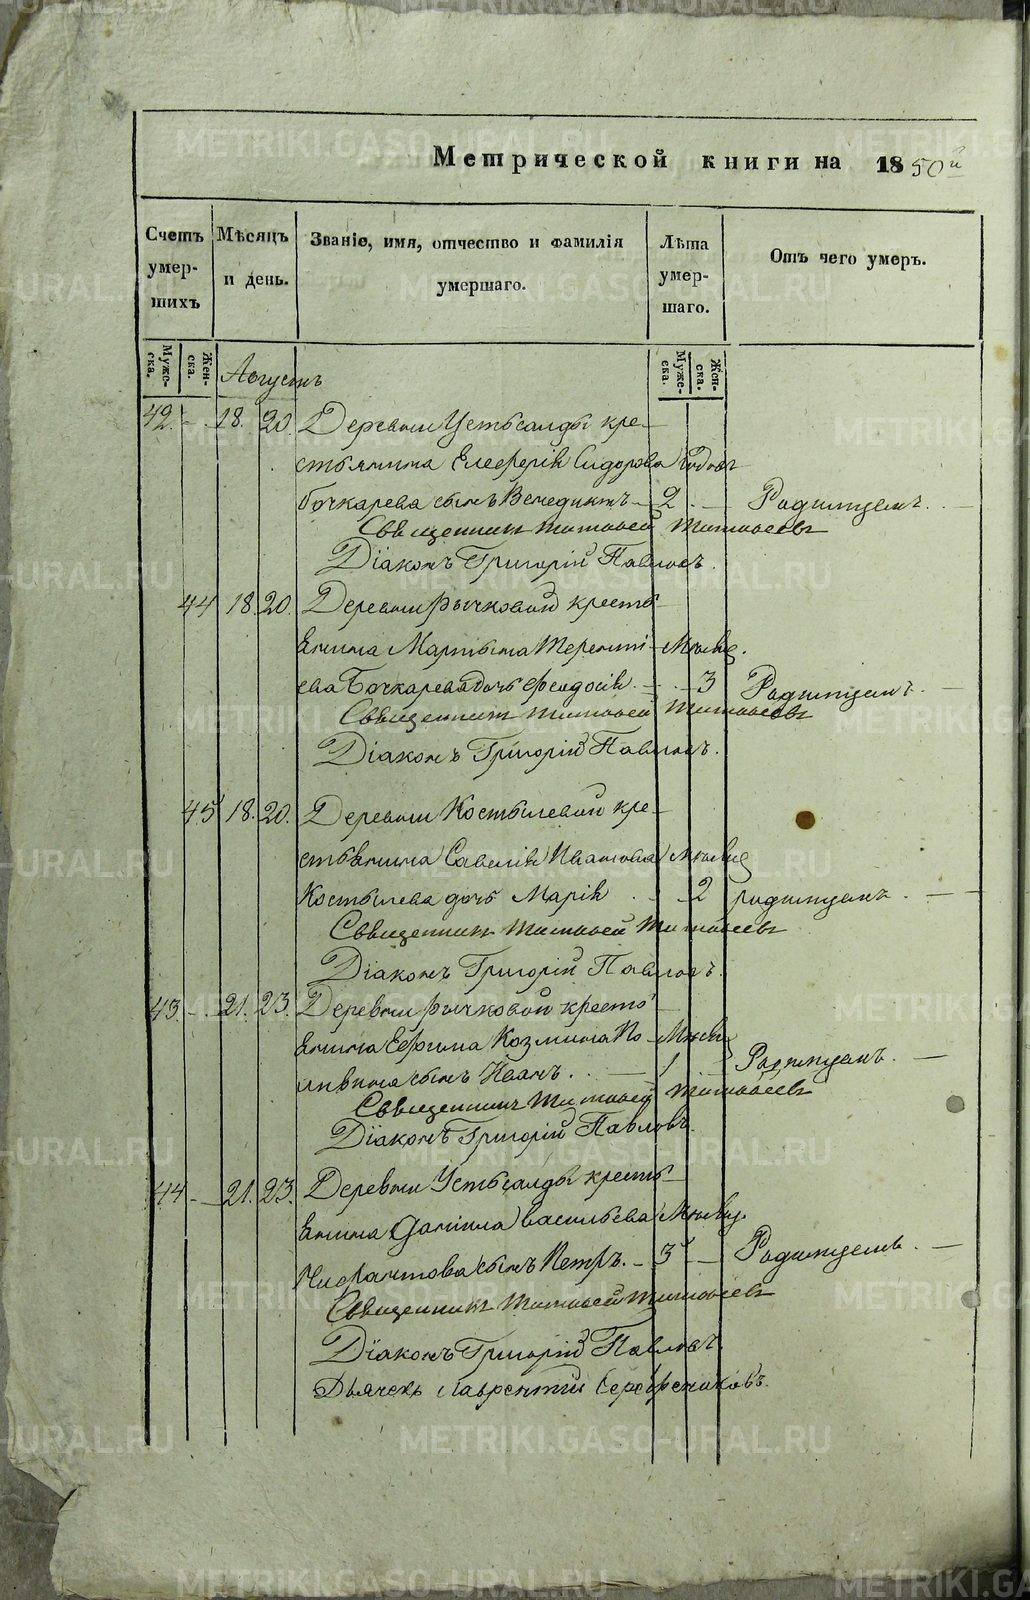 Метрической книги на 1850й
Счетъ умершихъ
Мѣсяцъ и день.
Званіе, имя, отчество и фамилія умершаго.
Лѣта умершаго.
Отъ чего умеръ.
Мужеска.
Женска.
Мужеска.
Женска.
Августъ
42. - 18. 20. Деревни Устьсалды кре-
стьянина Елеферія Сидорова Годовъ
Бочкарева сынъ Венедиктъ - 2 - Родимцемъ.
Священникъ Тимофей Тимофеевъ
Діаконъ Григорій Павловъ.
44 18. 20. Деревни Рычковой кресть-
янина Мартына Терентi- Мѣсяц.
ева Бочкарева дочь Феодосія - 3 Родимцемъ.
Священникъ Тимофей Тимофеевъ
Діаконъ Григорій Павловъ.
45 18. 20. Деревни Костылевой кре-
стьянина Савелія Иванова Мѣсяц
Костылева дочь Марія 2 родимцемъ.
Священникъ Тимофей Тимофеевъ
Діаконъ Григорій Павловъ.
43. - 21. 23. Деревни Рычковой кресть-
янина Ефима Козмина По- Мѣсяц
сынъ Иванъ. - 1 Родимцемъ.
Священникъ Тимофей Тимофеевъ
Діаконъ Григорій Павловъ.
44 - 21. 23. Деревни Устьсалды кресть-
янина Даніила Васильева Мѣсяц.
сынъ Петръ. - 3 - Родимцемъ.
Священникъ Тимофей Тимофеевъ
Діаконъ Григорій Павловъ.
Дьячекъ Лаврентій Серебрениковъ.
METRIKI.GASO-URAL.RU